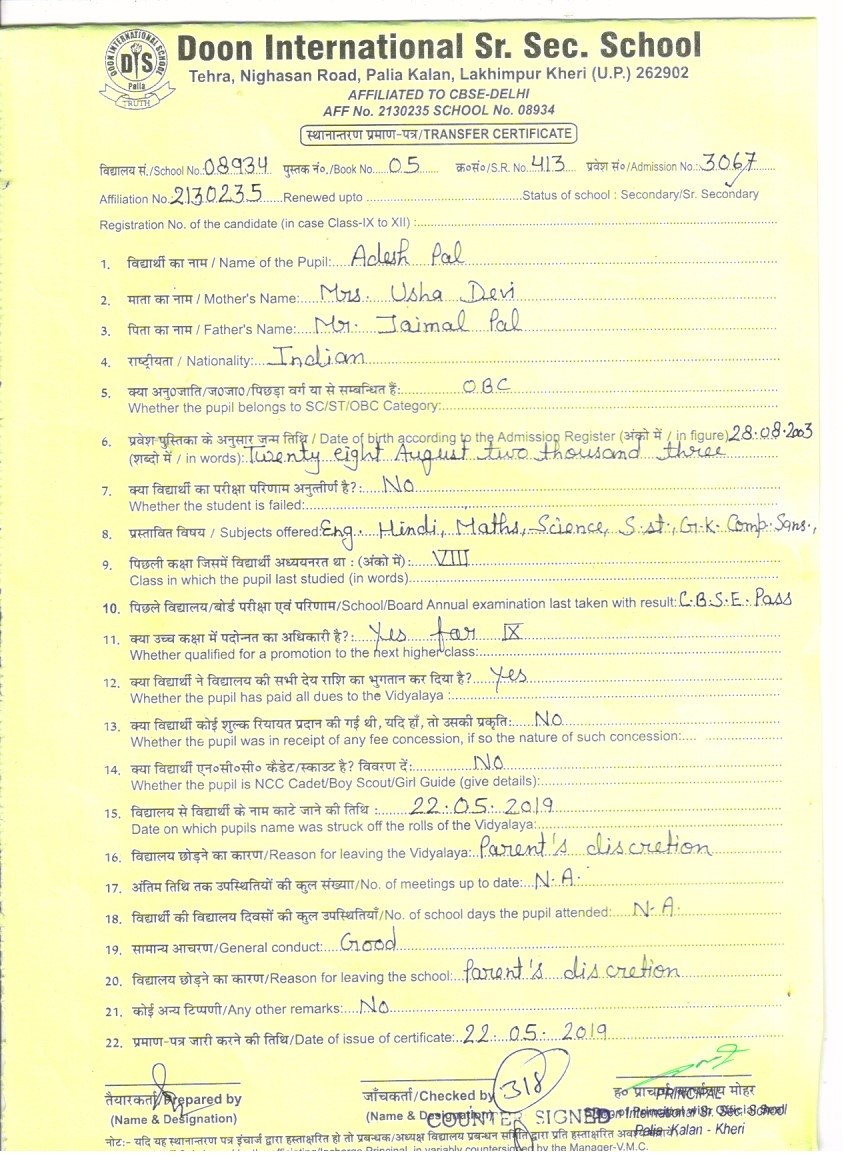 DOON INTERNATIONAL SCHOOL
DIS
Palia
TRUTH
Doon International Sr. Sec. School
Tehra, Nighasan Road, Palia Kalan, Lakhimpur Kheri (U.P.) 262902
AFFILIATED TO CBSE-DELHI
AFF No. 2130235 SCHOOL No. 08934
स्थानान्तरण प्रमाण-पत्र/TRANSFER CERTIFICATE
विद्यालय सं./School No. 08934 पुस्तक नं०./Book No. 05 क्र०सं०/S.R. No. 413 प्रवेश सं०/Admission No.: 3067
Affiliation No. 2130235 Renewed upto Status of school : Secondary/Sr. Secondary
Registration No. of the candidate (in case Class-IX to XII) :
1. विद्यार्थी का नाम / Name of the Pupil: Adesh Pal
2. माता का नाम / Mother's Name: Mrs. Usha Devi
3. पिता का नाम / Father's Name: Mr. Jaimal Pal
4. राष्ट्रीयता / Nationality: Indian
5. क्या अनु०जाति/ज०जा०/पिछड़ा वर्ग या से सम्बन्धित हैं: OBC
Whether the pupil belongs to SC/ST/OBC Category:
6. प्रवेश-पुस्तिका के अनुसार जन्म तिथि / Date of birth according to the Admission Register (अंको में / in figure) 28.08.2003
(शब्दो में / in words): Twenty eight August two thousand three
7. क्या विद्यार्थी का परीक्षा परिणाम अनुत्तीर्ण है?: No
Whether the student is failed:
8. प्रस्तावित विषय / Subjects offered: Eng. Hindi, Maths, Science, S.st., G.K. Comp. Sans.,
9. पिछली कक्षा जिसमें विद्यार्थी अध्ययनरत था : (अंको में): VIII
Class in which the pupil last studied (in words)
10. पिछले विद्यालय/बोर्ड परीक्षा एवं परिणाम/School/Board Annual examination last taken with result: C.B.S.E. Pass
11. क्या उच्च कक्षा में पदोन्नत का अधिकारी है?: Yes for IX
Whether qualified for a promotion to the next higher class:
12. क्या विद्यार्थी ने विद्यालय की सभी देय राशि का भुगतान कर दिया है? Yes
Whether the pupil has paid all dues to the Vidyalaya :
13. क्या विद्यार्थी कोई शुल्क रियायत प्रदान की गई थी, यदि हाँ, तो उसकी प्रकृति: No
Whether the pupil was in receipt of any fee concession, if so the nature of such concession:
14. क्या विद्यार्थी एन०सी०सी० कैडेट/स्काउट है? विवरण दें: No
Whether the pupil is NCC Cadet/Boy Scout/Girl Guide (give details):
15. विद्यालय से विद्यार्थी के नाम काटे जाने की तिथि : 22.05.2019
Date on which pupils name was struck off the rolls of the Vidyalaya:
16. विद्यालय छोड़ने का कारण/Reason for leaving the Vidyalaya: Parent's discretion
17. अंतिम तिथि तक उपस्थितियों की कुल संख्या/No. of meetings up to date: N.A.
18. विद्यार्थी की विद्यालय दिवसों की कुल उपस्थितियाँ/No. of school days the pupil attended: N.A.
19. सामान्य आचरण/General conduct: Good
20. विद्यालय छोड़ने का कारण/Reason for leaving the school: Parent's discretion
21. कोई अन्य टिप्पणी/Any other remarks: No
22. प्रमाण-पत्र जारी करने की तिथि/Date of issue of certificate: 22.05.2019
तैयारकर्ता/Prepared by जाँचकर्ता/Checked by 318 ह० प्राचार्य मोहर
PRINCIPAL
(Name & Designation) (Name & Designation) COUNTER SIGNED International Sr. Sec. School
Palia-Kalan - Kheri
नोट:- यदि यह स्थानान्तरण पत्र इंचार्ज द्वारा हस्ताक्षरित हो तो प्रबन्धक/अध्यक्ष विद्यालय प्रबन्धन समिति द्वारा प्रति हस्ताक्षरित
Principal, in variably countersigned by the Manager-V.M.C.